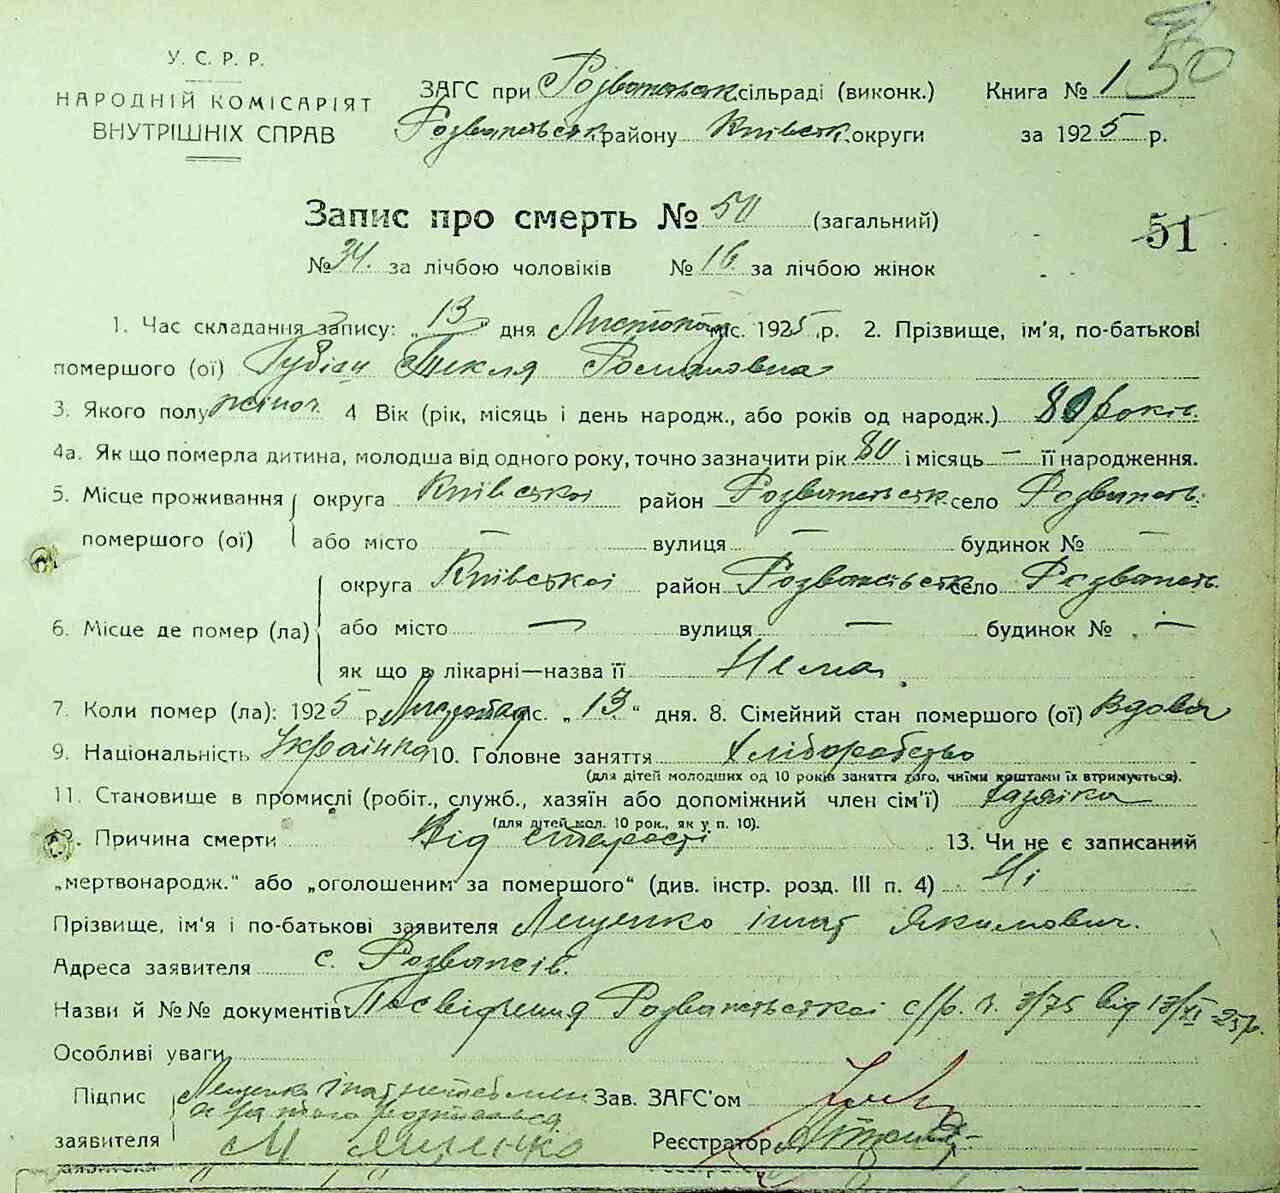 50
У. С. Р. Р.
НАРОДНІЙ КОМІСАРІЯТ
ВНУТРІШНІХ СПРАВ
ЗАГС при Розважівськ. сільраді (виконк.) Книга № 1
Розважівськ. району Київськ. округи за 1925 р.
Запис про смерть № 50 (загальний)
51
№ 34. за лічбою чоловіків № 16. за лічбою жінок
1. Час складання запису: „13" дня Листопад міс. 1925 р. 2. Прізвище, ім'я, по-батькові
помершого (ої) Текля Романовна
3. Якого полу жіноч. 4 Вік (рік, місяць і день народж., або років од народж.) 80 років.
4а. Як що померла дитина, молодша від одного року, точно зазначити рік 80 і місяць — її народження.
5. Місце проживання округа Київської район Розважівськ. село Розважів.
помершого (ої) або місто — вулиця — будинок № —
округа Київської район Розважівськ. село Розважів.
6. Місце де помер (ла) або місто — вулиця — будинок № —
як що в лікарні—назва її Нема.
7. Коли помер (ла): 1925 р. Листопад міс. „13." дня. 8. Сімейний стан помершого (ої) Вдова
9. Національність Українка 10. Головне заняття Хліборобство
(для дітей молодших од 10 років заняття того, чиїми коштами їх втримується).
11. Становище в промислі (робіт., служб., хазяїн або допоміжний член сім'ї) Хазяйка
(для дітей мол. 10 рок., як у п. 10).
12. Причина смерти Від старості 13. Чи не є записаний
„мертвонародж." або „оголошеним за помершого" (див. інстр. розд. III п. 4) Ні
Прізвище, ім'я і по-батькові заявителя Ященко Ігнат Якимович.
Адреса заявителя с. Розважів.
Назви й №№ документів Посвідчення Розважівської с/р. ч. 3/75 від 13/XI-25р.
Особливі уваги
Підпис Ященко Ігнат неписьмен Зав. ЗАГС'ом
а за нього розписався
заявителя М Ященко Реєстратор